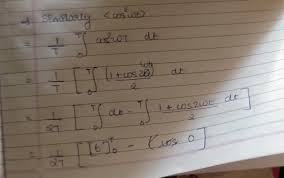 → Similarly <cos²ωt>
= 1/T ∫₀ᵀ cos²ωt dt
= 1/T [∫₀ᵀ [(1+cos2ωt)/2 dt
= 1/2T [∫₀ᵀ dt - ∫₀ᵀ (1+cos2ωt)/2 dt]
= 1/2T [[t]₀ᵀ - (cos 0]